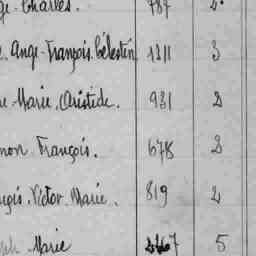 Charles. 787 2.
Ange-François-Célestin 1311 3
Marie, Aristide. 931 2
François. 678 2
Victor. Marie. 819 2
Marie 7 5